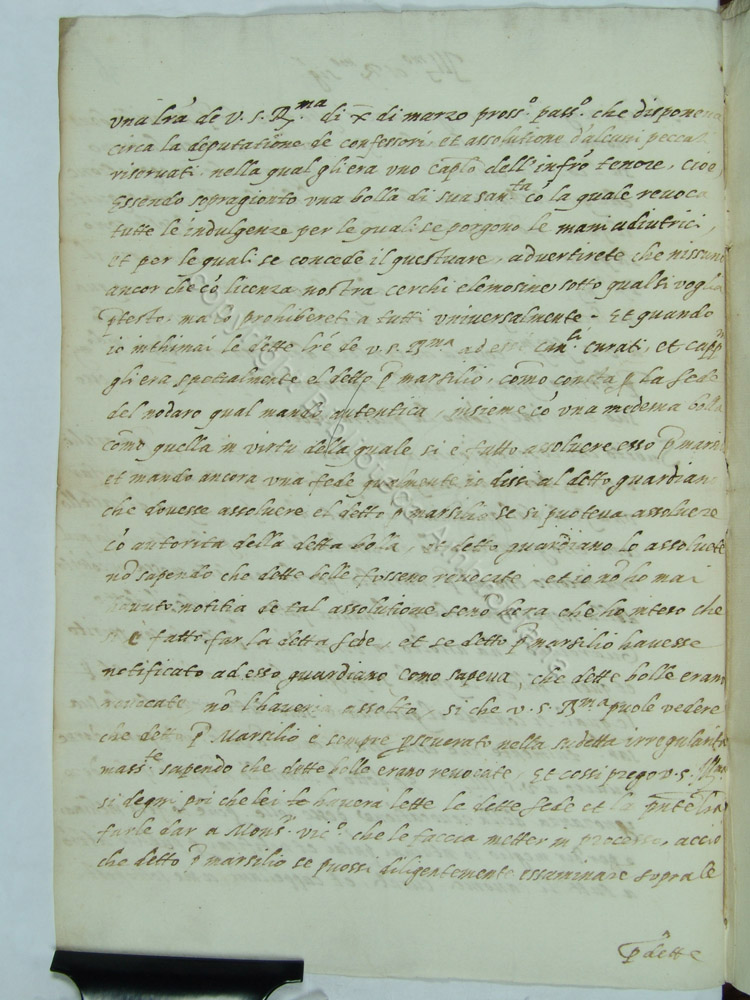 una lr̃a de V. S. R.ma di x di marzo pross.o pass.o che disponeva
circa la deputatione de confessori, et assolutione d'alcuni pecca
riservati nella qual gli era uno caplo dell'infro tenore, cioe
Essendo sopragionto una bolla di sua san.ta cõ la quale revoca
tutte le indulgenze per le quali se porgono le mani adiutrici,
et per le quali se concede il questuare, advertirete che nissuno
ancor che cõ licenza nostra cerchi elemosine sotto qual si voglia
p̃testo, ma lo prohiberete a tutti universalmente - Et quando
io inthimai le dette lr̃e de V. S. R.ma ad essi can.ci curati, et capp.ni
gli era spetialmente el detto p̃ marsilio, como consta p̃ la fede
del nodaro qual mando autentica, insieme cõ una medema bolla
como quella in virtu della quale si e fatto assolvere esso p̃ marsi
et mando ancora una fede qualmente io dissi al detto guardian
che dovesse assolvere el detto p̃ marsilio se si puoteva assolvere
cõ autorita della detta bolla, et detto guardiano lo assolvete
nõ sapendo che dette bolle fosseno revocate - et io nõ ho mai
havuto notitia de tal assolutione seno hera che ho inteso che
fatto far la detta fede, et se detto p̃ marsilio havesse
notificato ad esso guardiano como sapeva, che dette bolle erano
revocate, nõ l'haveria assolto, si che V. S. R.ma puole vedere
che detto p̃ Marsilio e sempre p̃severato nella sudetta irregularita
mass.te sapendo che dette bolle erano revocate, Et cossi prego V. S. Ill.ma
si degni poi che lei havera lette le dette fede et la pñte lr̃a
farle dar a Mons.r vic.o che le faccia metter in processo, accio
che detto p̃ marsilio se possi diligentemente essaminare sopra le
p̃dette